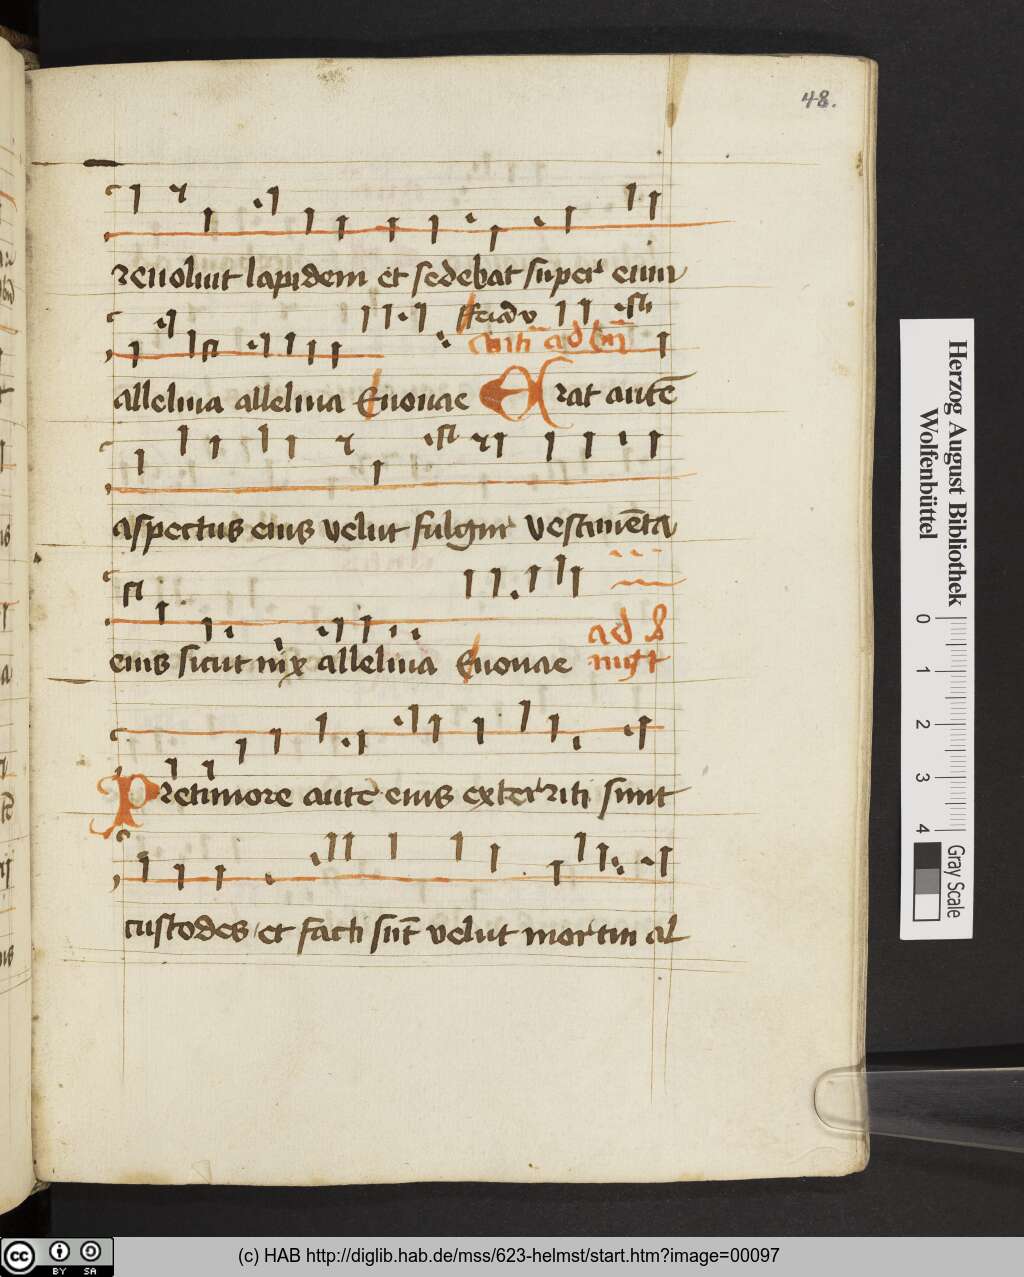 48.
revoluit lapidem et sedebat super eum
fferia v
alleluia alleluia Euouae Erat autē
aspectus eius velut fulgur vestimēta
eius sicut nix alleluia Euouae
ad
Pre timore autē eius exterriti sunt
custodes et facti sūt velut mortui al
Herzog August Bibliothek
Wolfenbüttel
0 1 2 3 4
Gray Scale
cc BY SA
(c) HAB http://diglib.hab.de/mss/623-helmst/start.htm?image=00097